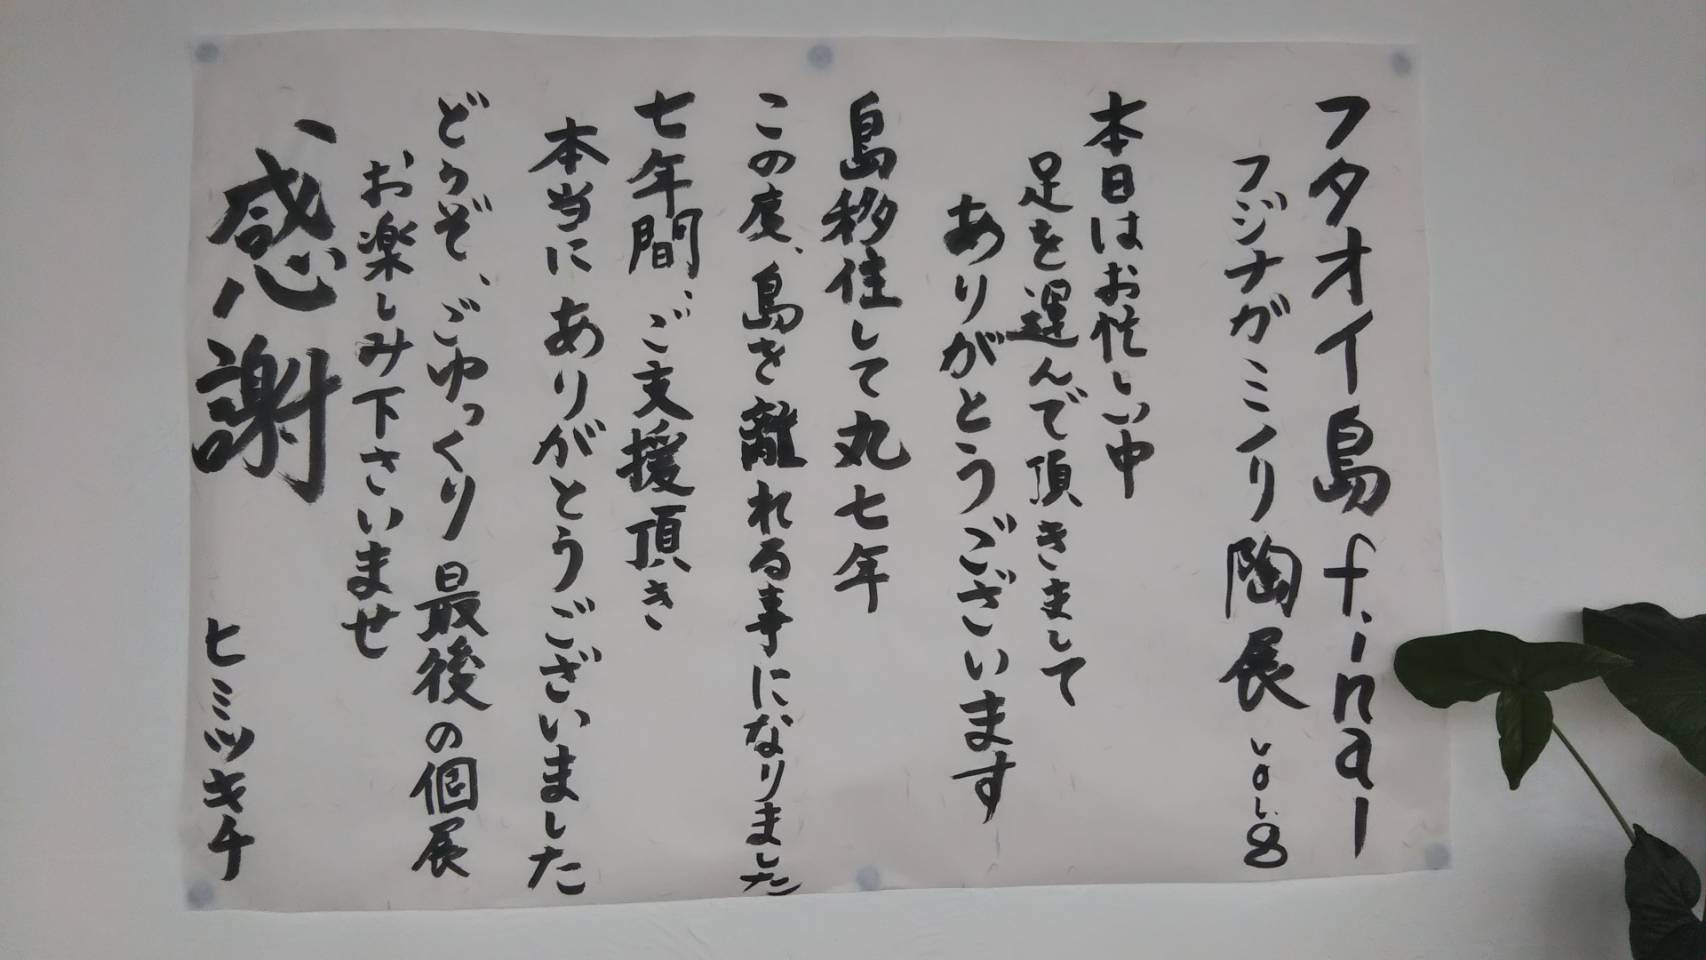 フタオイ島final
フジナガミノリ陶展 vol.8
本日はお忙しい中
足を運んで頂きまして
ありがとうございます
島移住して丸七年
この度、島を離れる事になりました
七年間、ご支援頂き
本当にありがとうございました
どうぞ、ごゆっくり最後の個展
お楽しみ下さいませ
感謝
ヒミツキチ